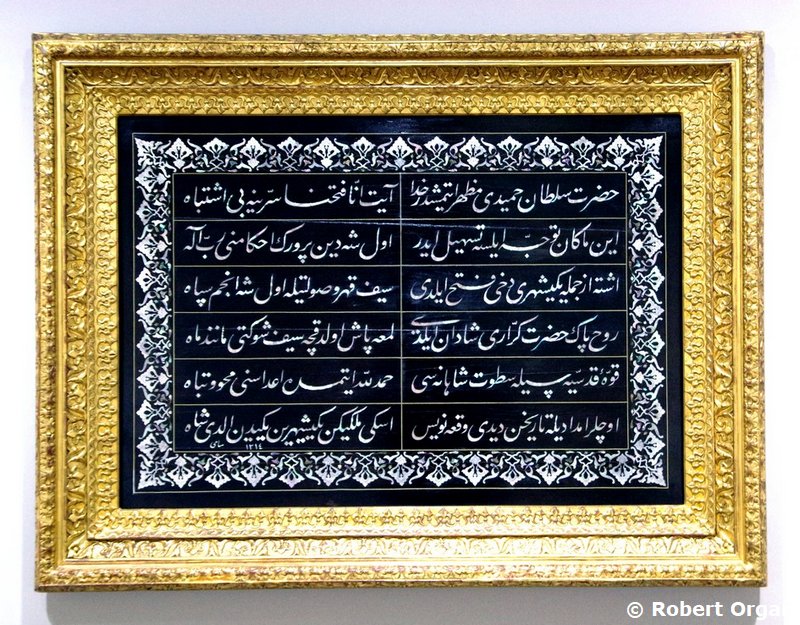 حضرت سلطان حمیدی مظهر ایتمشدر خدا آیت انّا فتحنا سرّینه بی اشتباه
این ماکان توجّه ایلسه تسهیل ایدر اول شه دین پرورك احکامنی ربّ اله
اشته از جمله یکیشهری دخی فتح ایلدی سیف قهر و صولتیله اول شه انجم سپاه
روح پاك حضرت کرّاری شادان ایلدی لمعه پاش اولدقچه سیف شوکتی مانند ماه
قوّه قدسیه سیله سطوت شاهانه سی حمد لله ایتمده اعداسنی محو و تباه
اوچلر امدادیله تاریخن دیدی وقعه نویس اسکی ملکیکن یکیشهرین یکیدن الدی شاه
سامی ١٣١٤
© Robert Organ